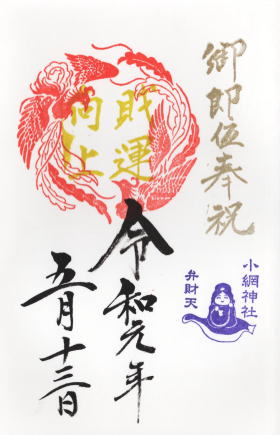 御即位奉祝
財運
向上
令和元年
五月十三日
小網神社
弁財天